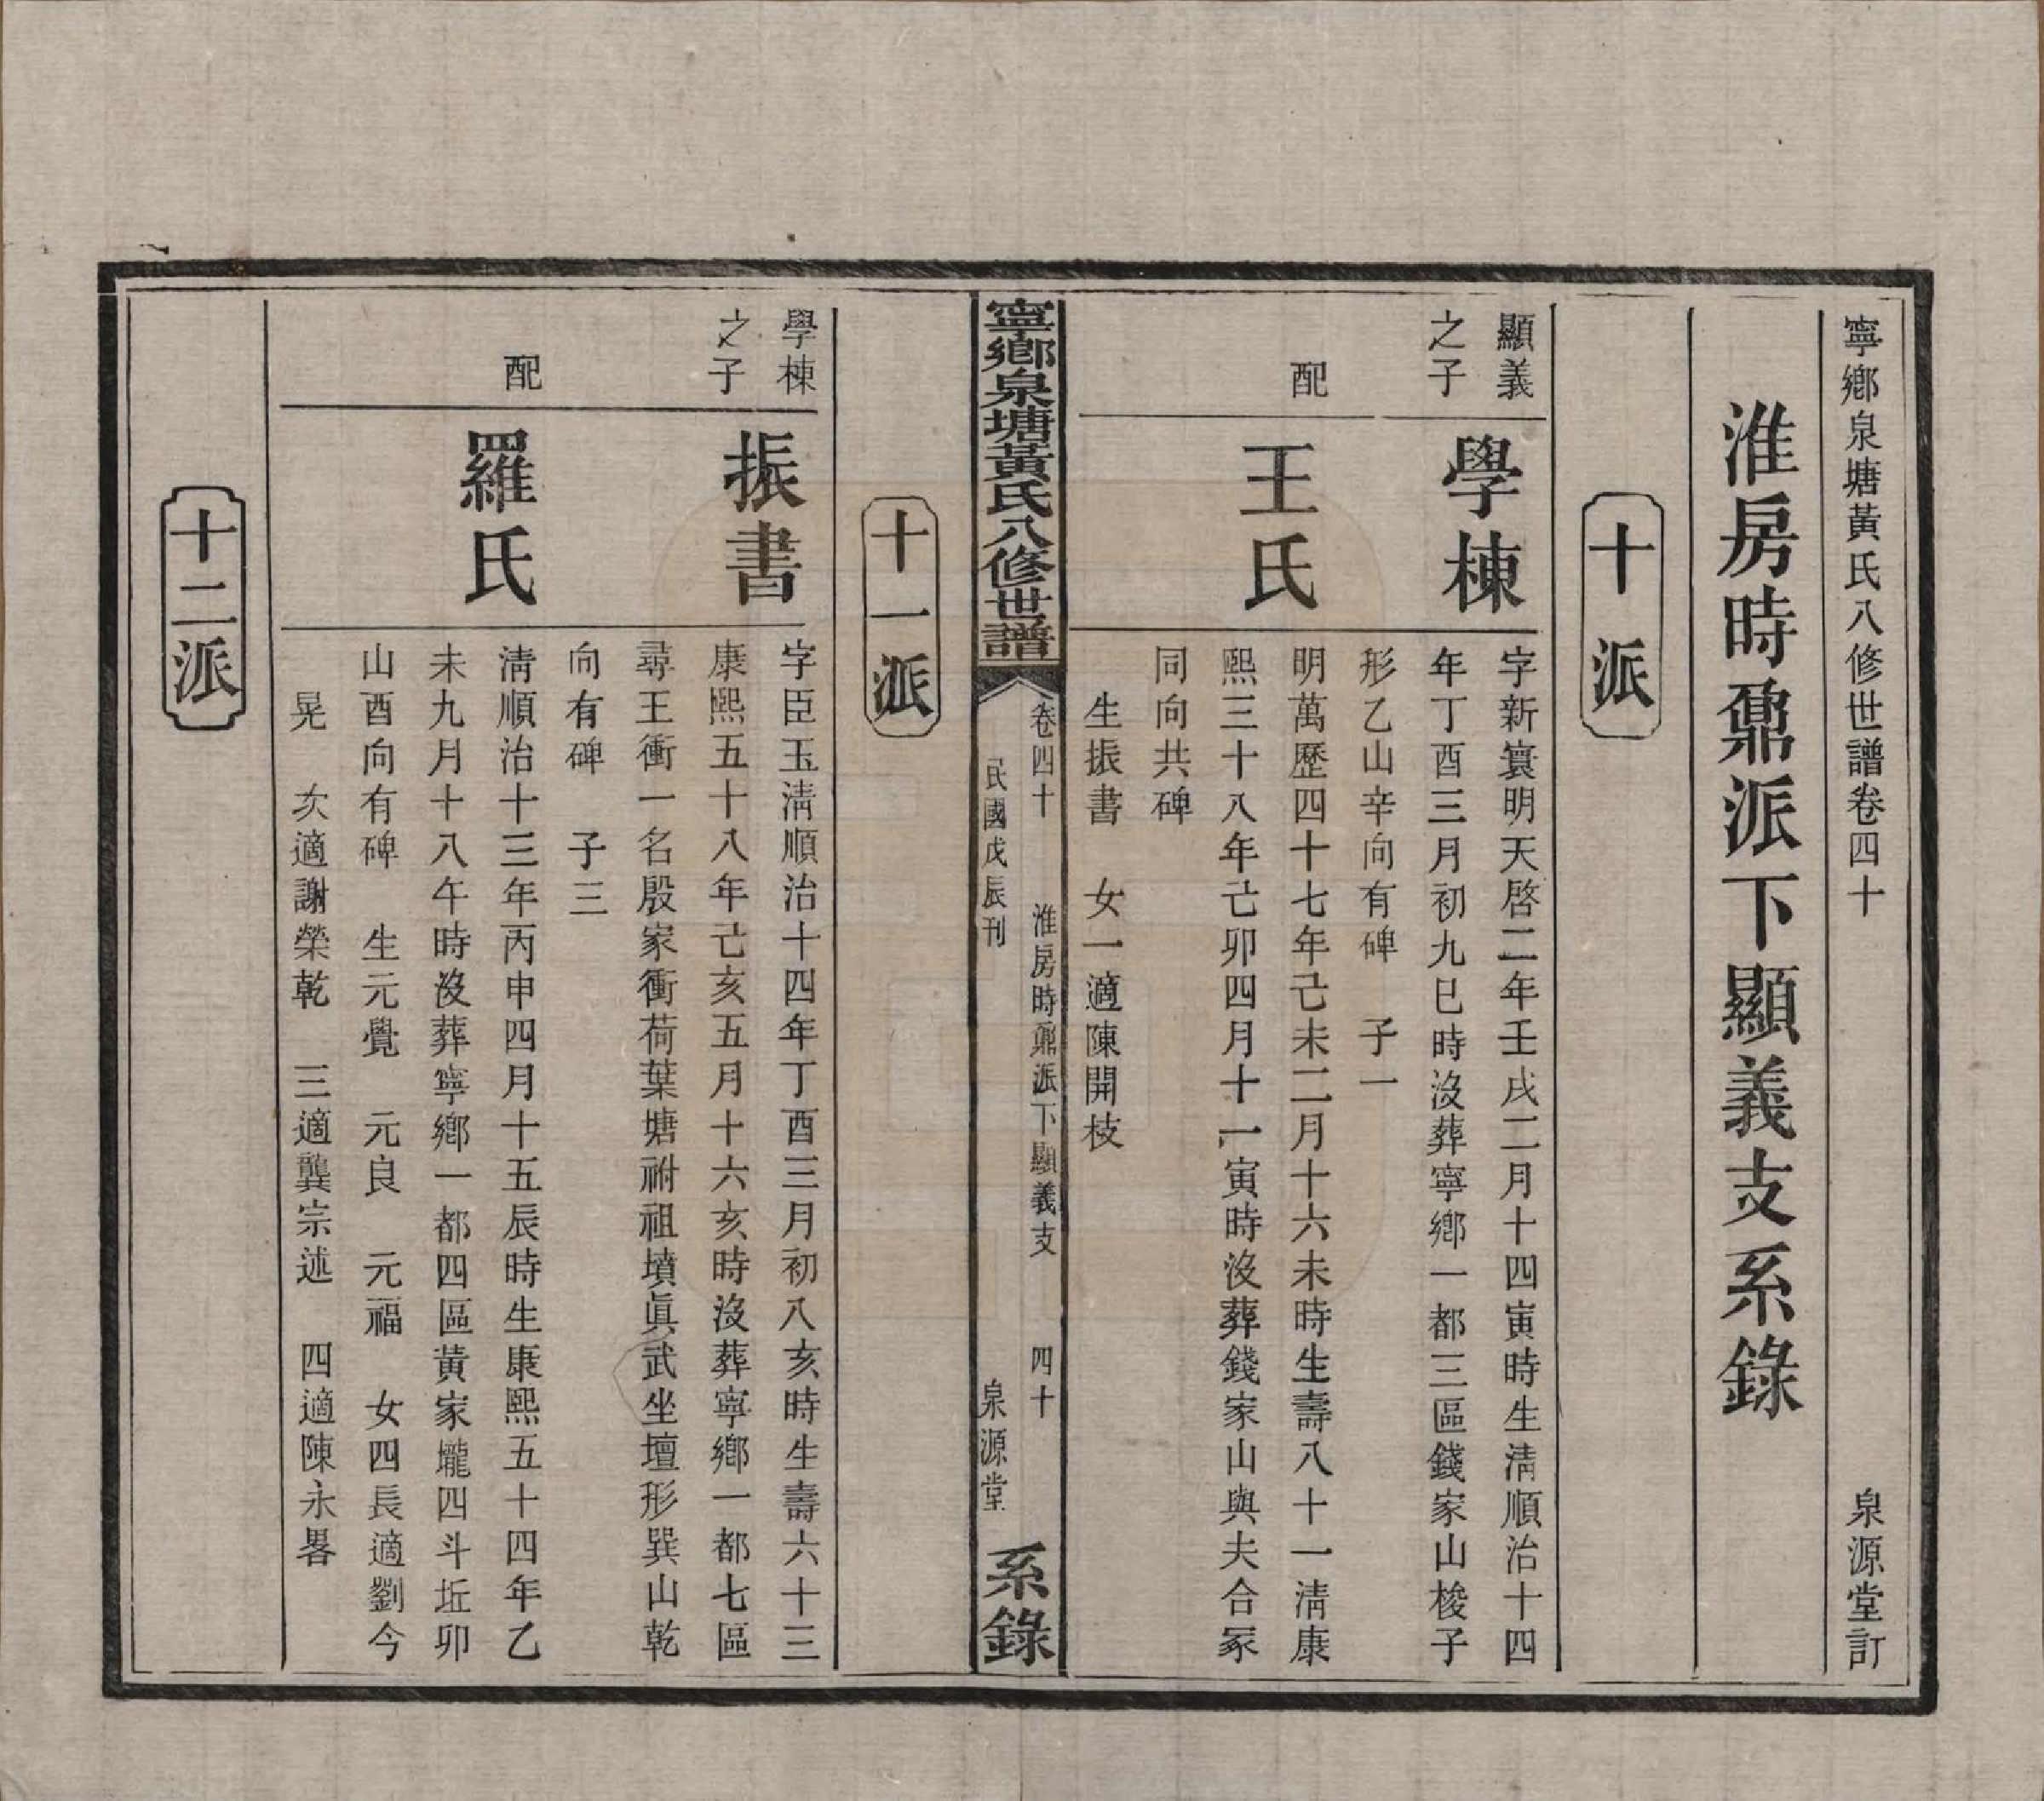 寧鄉泉塘黃氏八修世譜卷四十　泉源堂訂
淮房時鼐派下顯義支系錄
十派
顯義
之子
學棟
字新寰明天啓二年壬戌二月十四寅時生淸順治十四
年丁酉三月初九巳時沒葬寧鄉一都三區錢家山梭子
形乙山辛向有碑　子一
配
王氏
明萬歷四十七年己未二月十六未時生壽八十一淸康
熙三十八年己卯四月十一寅時沒葬錢家山與夫合冢
同向共碑
生振書　女一適陳開枝
寧鄉泉塘黃氏八修世譜
卷四十　淮房時鼐派下顯義支　四十
民國戊辰刊　泉源堂
系錄
十一派
學棟
之子
振書
字臣玉淸順治十四年丁酉三月初八亥時生壽六十三
康熙五十八年己亥五月十六亥時沒葬寧鄉一都七區
尋王衝一名殷家衝荷葉塘祔祖墳眞武坐壇形巽山乾
向有碑　子三
配
羅氏
淸順治十三年丙申四月十五辰時生康熙五十四年乙
未九月十八午時沒葬寧鄉一都四區黃家壠四斗坵卯
山酉向有碑　生元覺　元良　元福　女四長適劉今
晃　次適謝榮乾　三適龔宗述　四適陳永畧
十二派